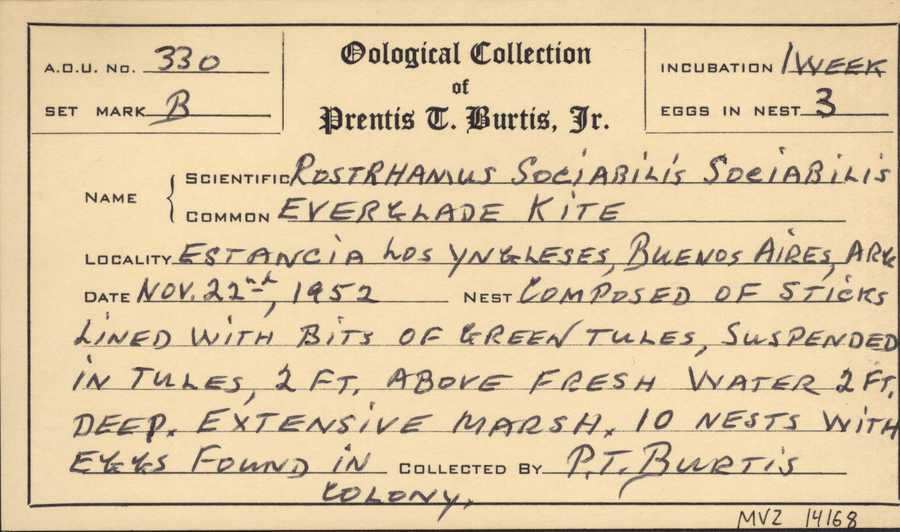 A.O.U. No. 330
SET MARK B
Oological Collection
of
Prentis T. Burtis, Jr.
INCUBATION 1 WEEK
EGGS IN NEST 3
NAME
SCIENTIFIC ROSTRHAMUS SOCIABILIS SOCIABILIS
COMMON EVERGLADE KITE
LOCALITY ESTANCIA LOS YNGLESES, BUENOS AIRES, ARG
DATE NOV. 22nd, 1952 NEST COMPOSED OF STICKS
LINED WITH BITS OF GREEN TULES, SUSPENDED
IN TULES, 2 FT. ABOVE FRESH WATER 2 FT.
DEEP. EXTENSIVE MARSH. 10 NESTS WITH
EGGS FOUND IN COLLECTED BY P.T. BURTIS
COLONY.
MVZ 14168